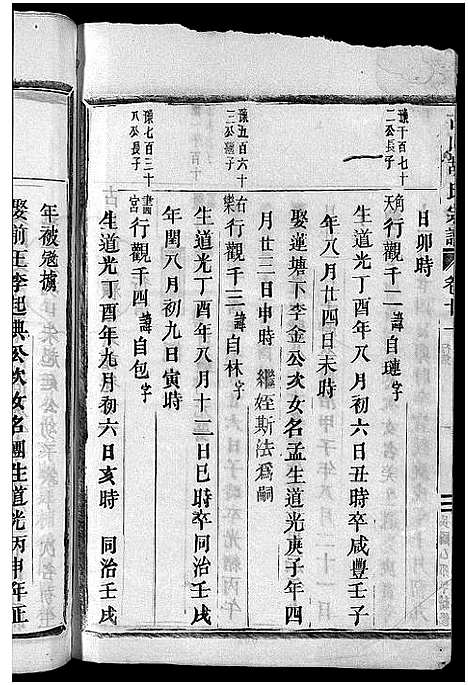 氏宗譜
卷十
日卯時
豫千百七十二公長子
角天行觀千二諱自璉字
生道光丁酉年八月初六日丑時卒咸豐壬子
年八月廿四日未時
娶蓮塘下李金公次女名孟生道光庚子年四
月廿三日申時 繼姪斯法爲嗣
豫五百六十三公
右行觀千三諱自林字
生道光丁酉年八月十二日巳時卒同治壬戌
年閏八月初九日寅時
豫七百三十八公長子
畵宮行觀千四諱自包字
生道光丁酉年九月初六日亥時 同治壬戌
年被
娶前王李起興公次女名團生道光丙申年正